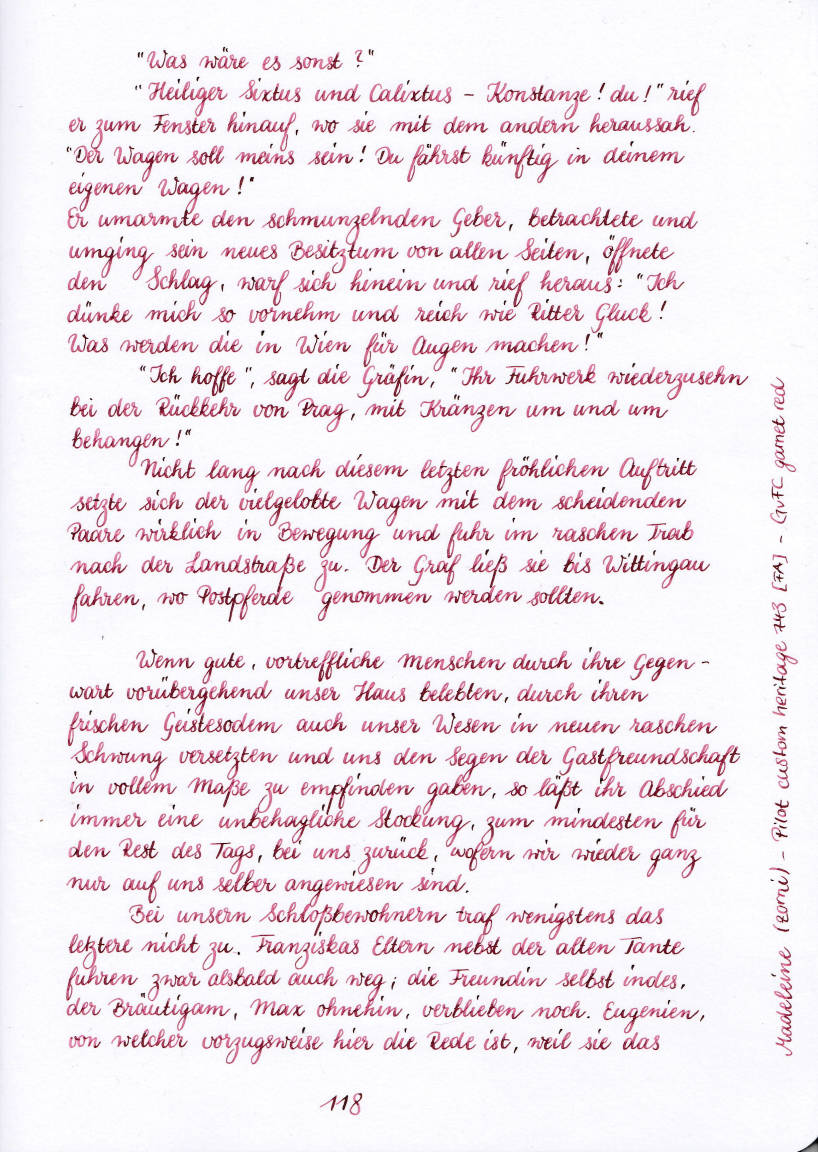 "Was wäre es sonst?"
"Heiliger Sixtus und Calixtus - Konstanze! du!" rief
er zum Fenster hinauf, wo sie mit dem andern heraussah.
"Der Wagen soll meins sein! Du fährst künftig in deinem
eigenen Wagen!"
Er umarmte den schmunzelnden Geber, betrachtete und
umging sein neues Besitztum von allen Seiten, öffnete
den Schlag, warf sich hinein und rief heraus: "Ich
dünke mich so vornehm und reich wie Ritter Gluck!
Was werden die in Wien für Augen machen!"
"Ich hoffe", sagt die Gräfin, "Ihr Fuhrwerk wiederzusehn
bei der Rückkehr von Prag, mit Kränzen um und um
behangen!"
Nicht lang nach diesem letzten fröhlichen Auftritt
setzte sich der vielgelobte Wagen mit dem scheidenden
Paare wirklich in Bewegung und fuhr im raschen Trab
nach der Landstraße zu. Der Graf ließ sie bis Wittingau
fahren, wo Postpferde genommen werden sollten.
Wenn gute, vortreffliche Menschen durch ihre Gegen-
wart vorübergehend unser Haus belebten, durch ihren
frischen Geistesodem auch unser Wesen in neuen raschen
Schwung versetzten und uns den Segen der Gastfreundschaft
in vollem Maße zu empfinden gaben, so läßt ihr Abschied
immer eine unbehagliche Stockung, zum mindesten für
den Rest des Tags, bei uns zurück, wofern wir wieder ganz
nur auf uns selber angewiesen sind.
Bei unsern Schloßbewohnern traf wenigstens das
letztere nicht zu. Franziskas Eltern nebst der alten Tante
fuhren zwar alsbald auch weg; die Freundin selbst indes,
der Bräutigam, Max ohnehin, verblieben noch. Eugenien,
von welcher vorzugsweise hier die Rede ist, weil sie das
118
Madeleine (zorni) - Pilot custom heritage 743 [FA] - GvFC garnet red